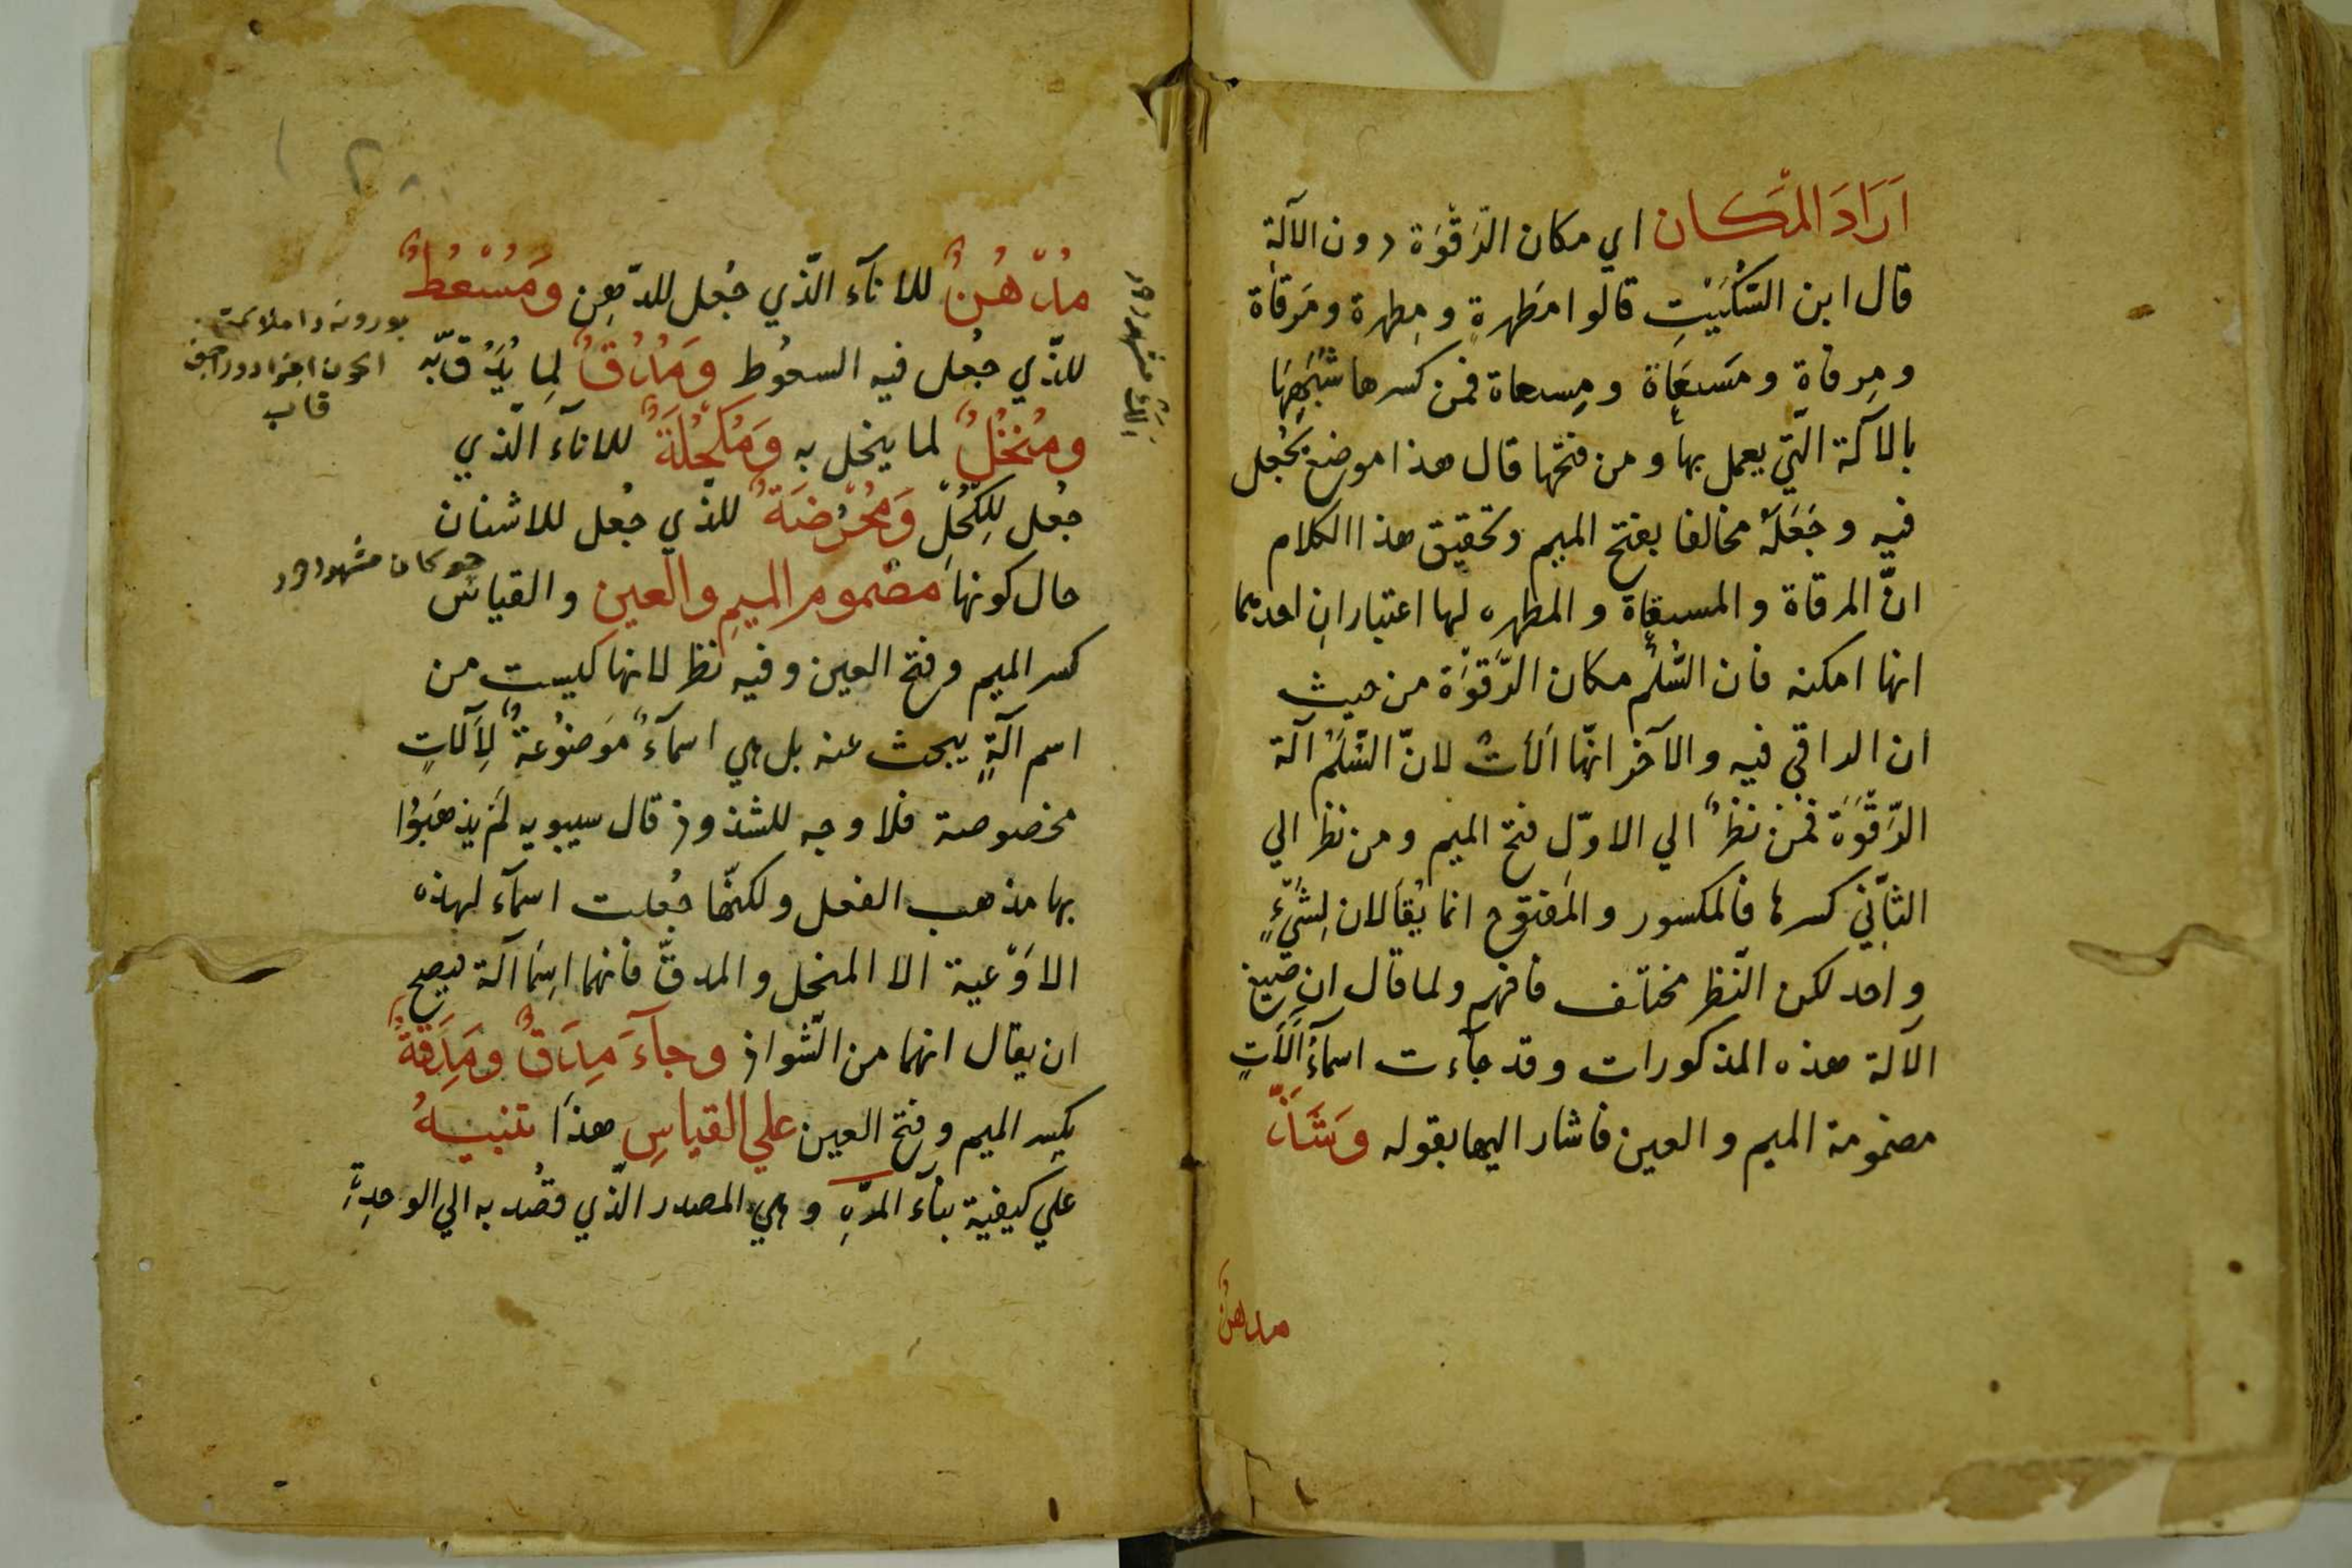 اَرَادَ المَكَان اي مكان الرَقْوَة دون الآلة
قال ابن السّكّيْتِ قالوا مَطهرةٍ ومِطهرة ومَرقاة
ومِرقاة ومَسعَاة ومِسعاة فمن كسرها شبّهها
بالآلة الّتي يعمل بها ومن فتحها قال هذا موضع يُجعل
فيه وجَعَلَهُ مخالفا بفتح الميم وتحقيق هذا الكلام
انّ المرقاة والمسقاة والمطهره لها اعتبارانِ احديهما
انها امكنه فان السُّلَّم مكان الرَّقْوَة من حيث
ان الراقي فيه والآخر انّها آلاتٌ لانّ السُّلَّم آلة
الرّقْوَة فمن نظرَ الي الاوّل فتح الميم ومن نظر الي
الثّاني كسرها فالمكسور والمفتوح انما يُقالان لِشَيْءٍ
واحد لكن النّظر مختلف فافهم ولما قال ان صيغ
الآلة هذه المذكورات وقد جآءت اسمآءُ آلاتٍ
مضمومة الميم والعين فاشار اليها بقوله وَشَذَّ
مدهنٌ
مُدْهُنٌ للانآء الّذي جُعل للدّهن وَمُسْعُطٌ
للّذي جُعل فيه السعُوط وَمُدُقٌّ لِما يُدَقّ به
ومُنْخُلٌ لما ينخل به وَمُكْحُلَةٌ للانآء الّذي
جُعل لِلكُحْلِ وَمُحْرُضَةٌ للذّي جعُل للاشنان
حال كونها مضموم الميمِ والعين والقياس
كسر الميم وفتح العين وفيه نظر لانها ليست من
اسم آلةٍ يبحث عنه بل هي اسمآءٌ مَوضوُعةٌ لِآلاتٍ
مخصوصة فلا وجه للشذوذ قال سيبويه لَمْ يذهَبُوا
بها مذهب الفعل ولكنّها جُعلت اسمآء لهذه
الاوْعية الا المنخل والمدقّ فانهما اسما آلة فيصح
ان يقال انهما من الشّواذ وجآءَ مِدَقٌّ ومِدَقَّةٌ
بكسر الميم وفتح العين علي القياسِ هذا تنبيهٌ
علي كيفية بنآء المرّةِ وهي المصدر الّذي قصُد به الي الوحدةِ
قاب